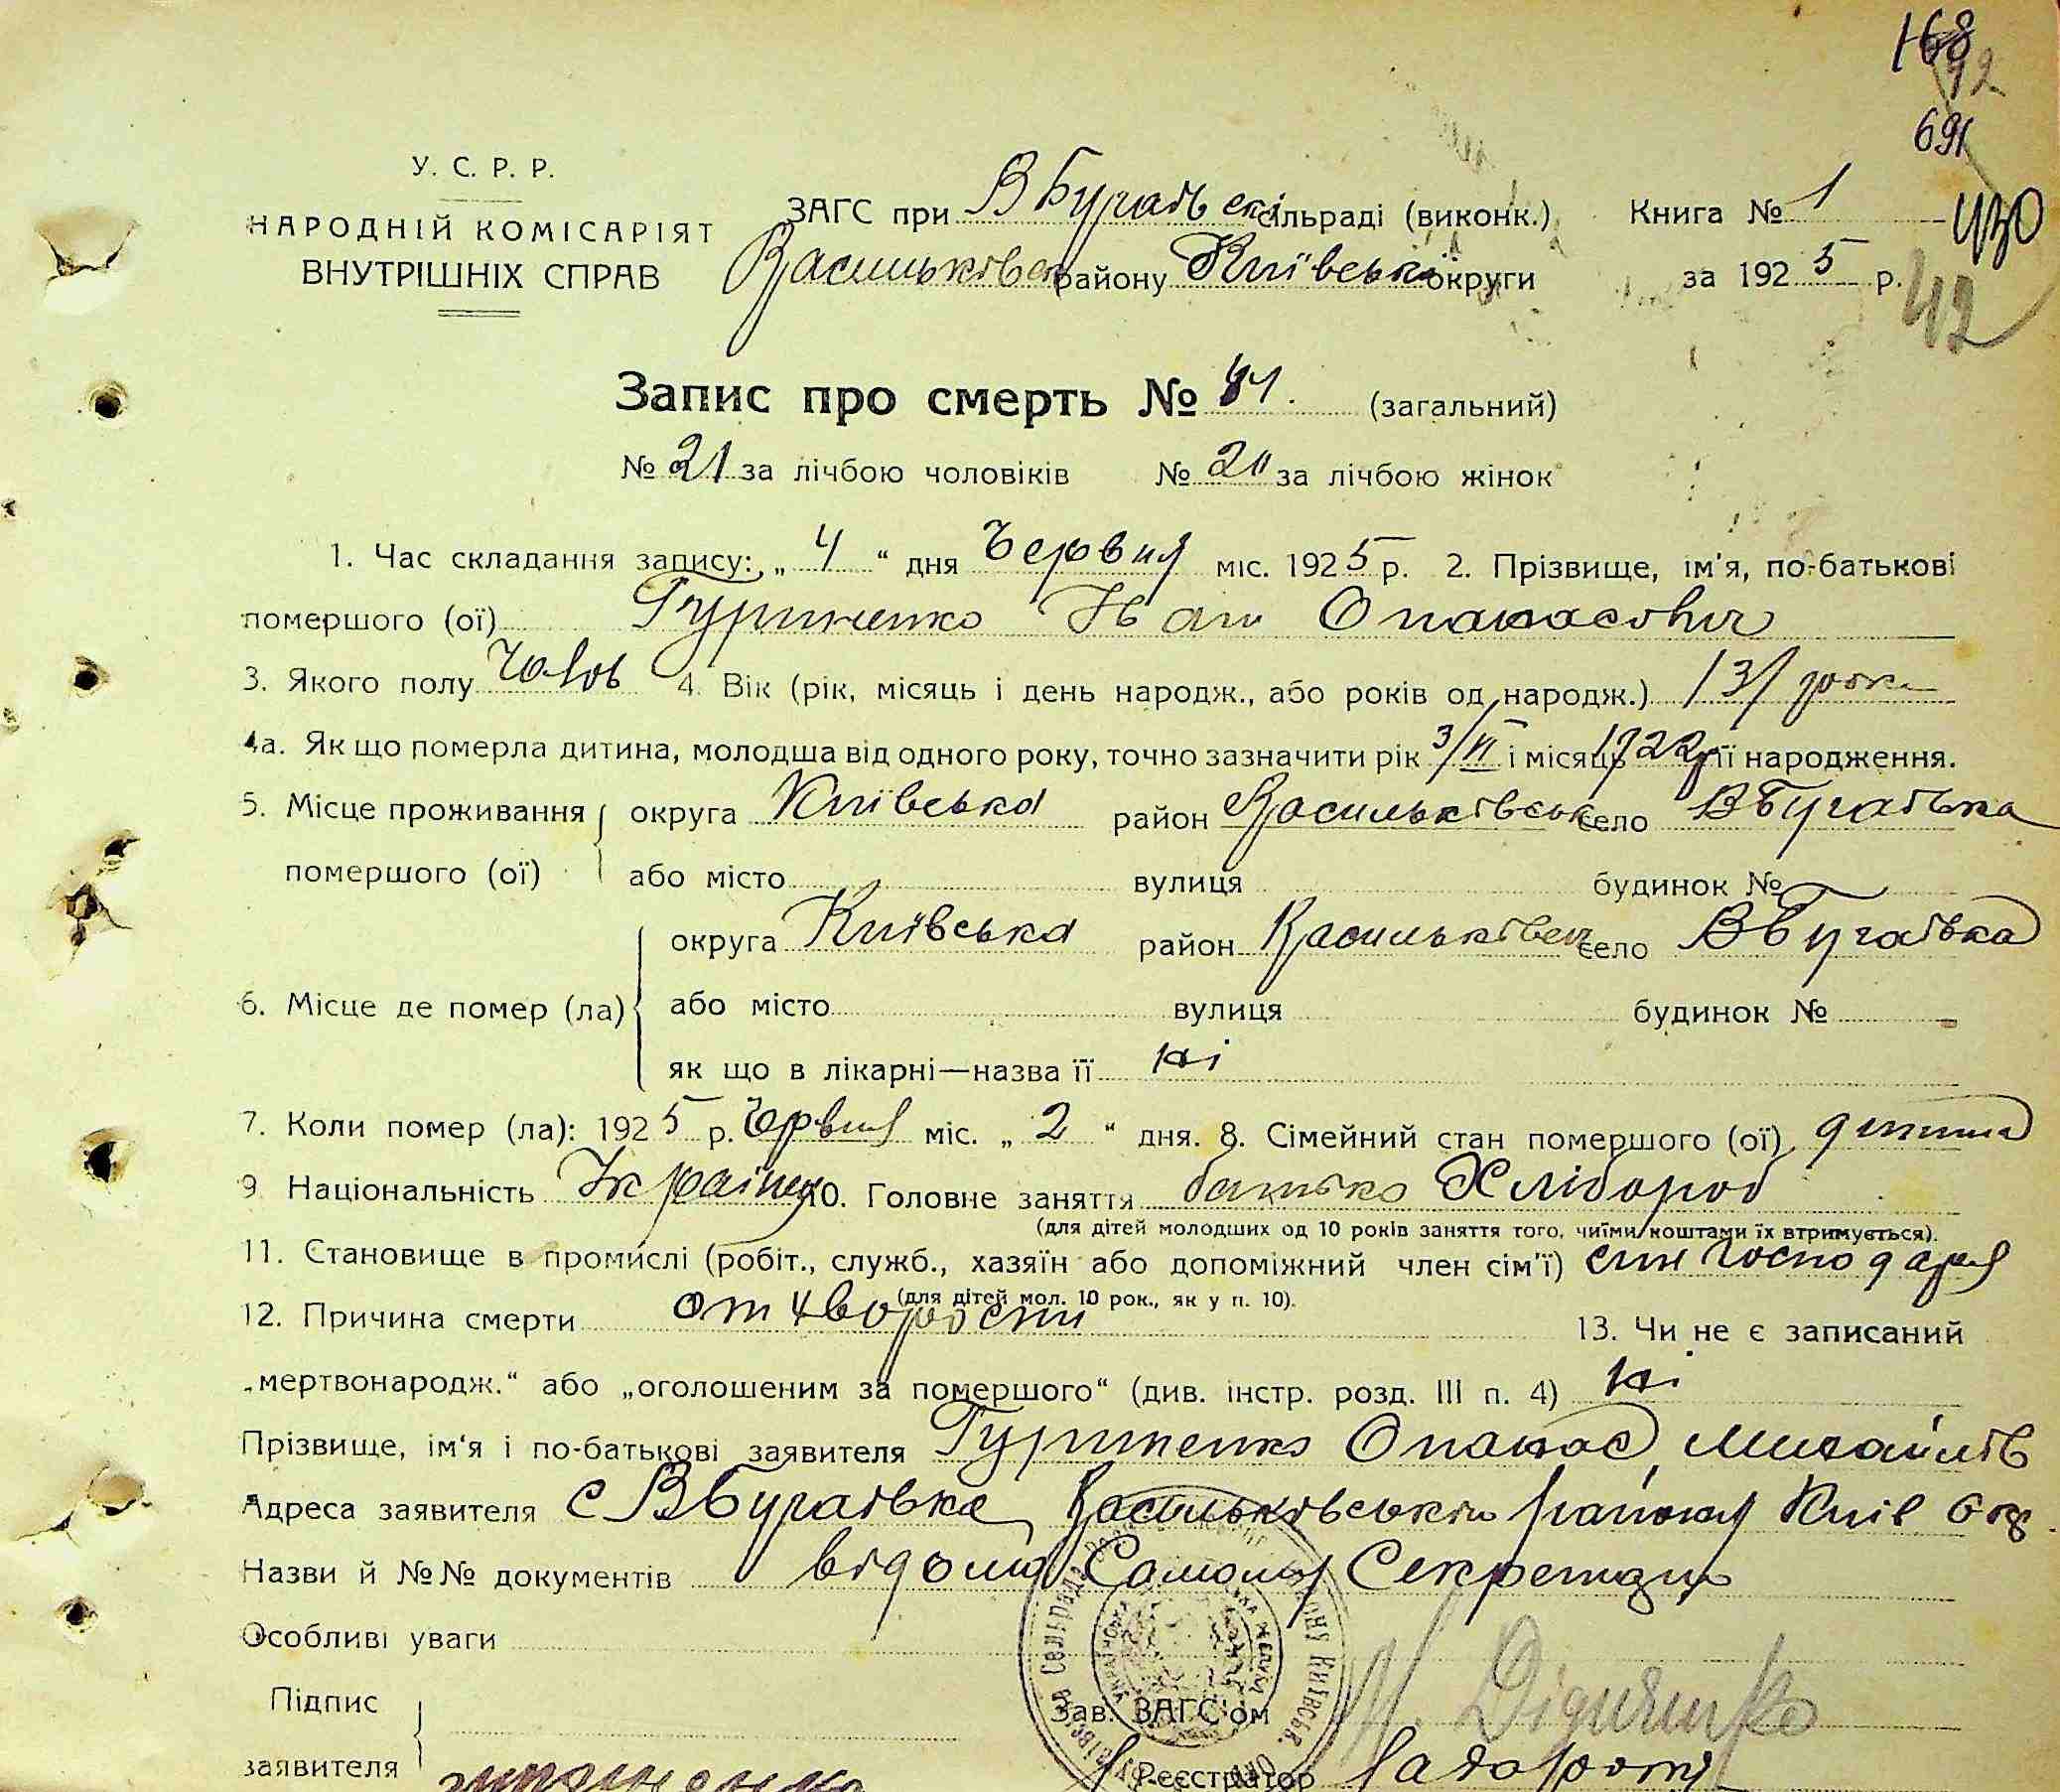 168
691
У. С. Р. Р.
НАРОДНІЙ КОМІСАРІЯТ
ВНУТРІШНІХ СПРАВ
ЗАГС при В Бугаївські сільраді (виконк.)
Васильківськ району Київської округи
Книга № 1
430
за 1925 р.
42
Запис про смерть № 41. (загальний)
№ 21 за лічбою чоловіків № 20 за лічбою жінок
1. Час складання запису: „ 4 “ дня Червня міс. 1925 р. 2. Прізвище, ім'я, по-батькові
помершого (ої) Іван Опанасович
3. Якого полу Чолов 4. Вік (рік, місяць і день народж., або років од народж.) 3 роки
4а. Як що померла дитина, молодша від одного року, точно зазначити рік 3/VI і місяць 1922 р її народження.
5. Місце проживання округа Київська район Васильківськ село В Бугаївка
помершого (ої) або місто вулиця будинок №
округа Київська район Васильківськ село В Бугаївка
6. Місце де помер (ла) або місто вулиця будинок №
як що в лікарні—назва її ні
7. Коли помер (ла): 1925 р. Червня міс. „ 2 “ дня. 8. Сімейний стан помершого (ої) дитина
9 Національність Українец 10. Головне заняття батько Хлібороб
(для дітей молодших од 10 років заняття того, чиїми коштами їх втримується).
11. Становище в промислі (робіт., служб., хазяїн або допоміжний член сім'ї) син господаря
(для дітей мол. 10 рок., як у п. 10).
12. Причина смерти от хворости 13. Чи не є записаний
„мертвонародж.“ або „оголошеним за помершого“ (див. інстр. розд. III п. 4) ні
Прізвище, ім'я і по-батькові заявителя Опанас Михайлів
Адреса заявителя с В Бугаївка Васильківського району Київ окр.
Назви й №№ документів відома Самому Секретарю
Особливі уваги
Підпис
Зав. ЗАГС'ом
заявителя
Реєстратор